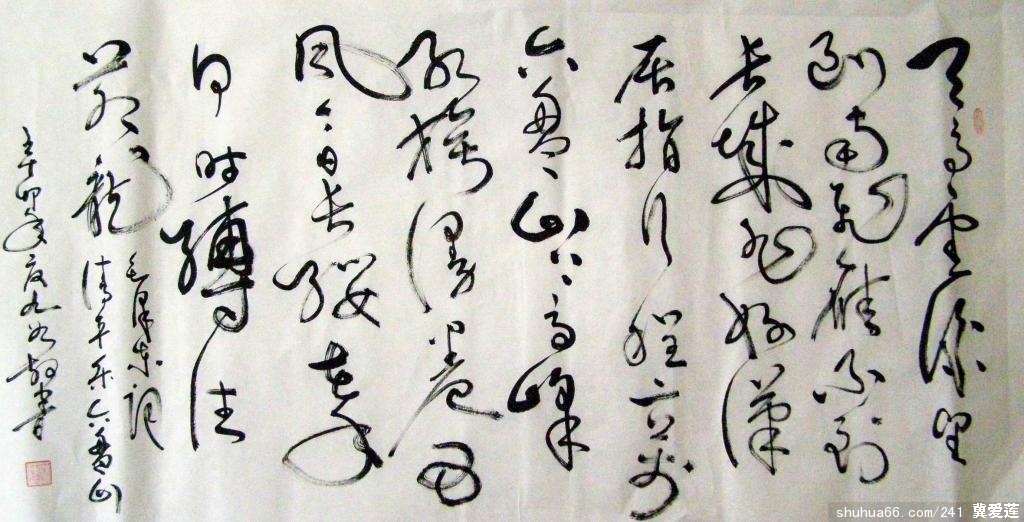 天高云淡望
断南飞雁不到
长城非好漢
屈指行程二万
六盘山上高峰
红旗漫卷西
风今日长缨在手
何时缚住
苍龍
毛泽东词
清平乐六盘山
卯年夏九如敬書
shuhua66.com/241 冀爱莲